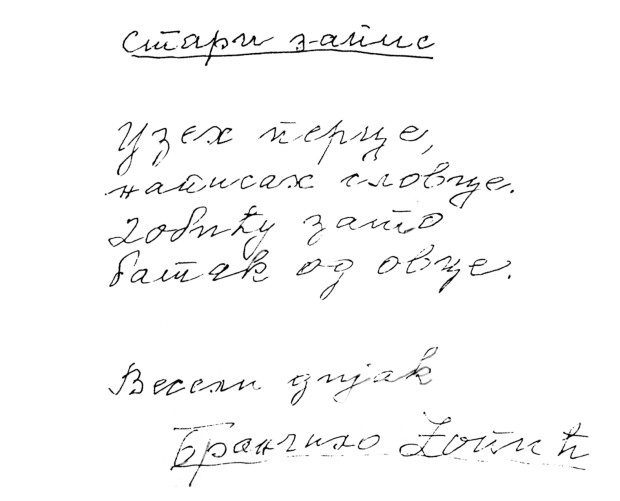 Стари запис
Узех перце,
написах словце.
Добићу зато
батак од овце.
Весели дијак
Бранчило Ћопић